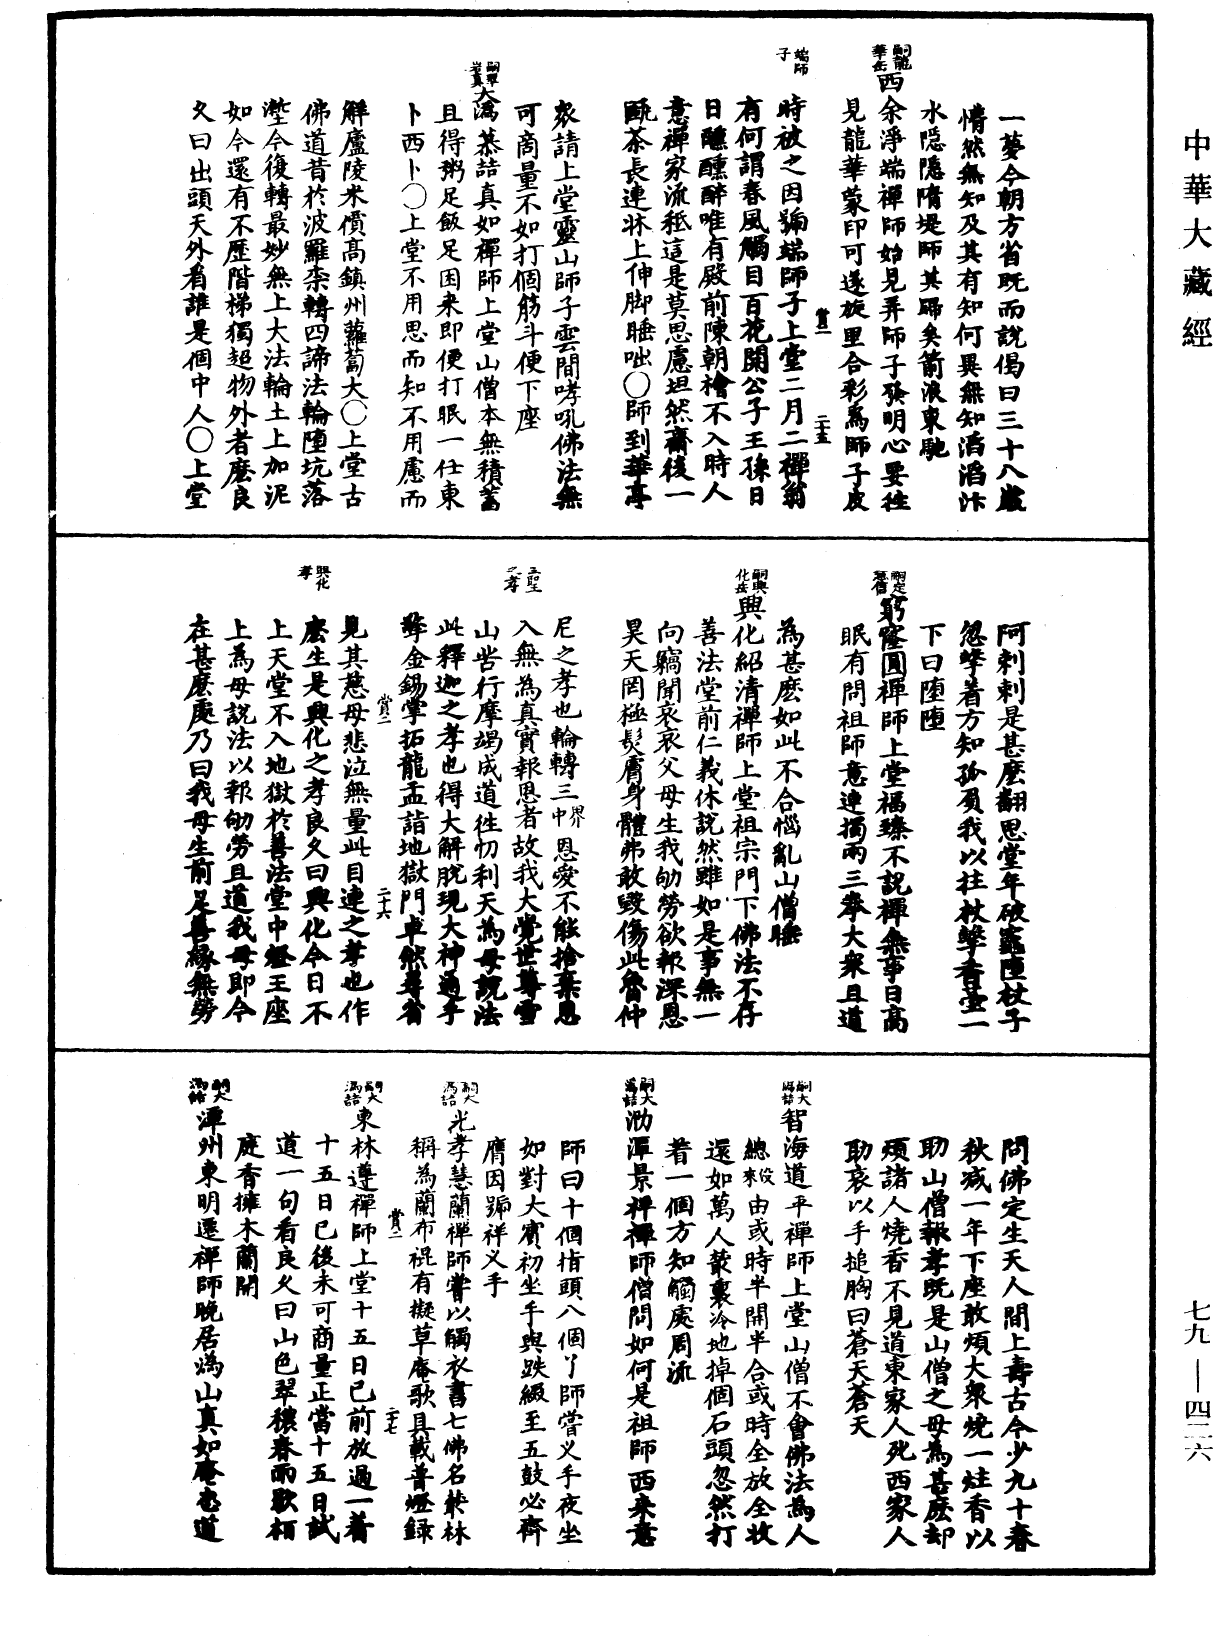 中華大藏經
一夢今朝方省既而說偈曰三十八歲
懵然無知及其有知何異無知滔滔汴
水隱隱隋堤師其歸矣箭浪東馳
嗣龍華岳
西余淨端禪師始見弄師子發明心要往
見龍華蒙印可遂旋里合彩為師子皮
端師子
時被之因號端師子上堂二月二禪翁
有何謂春風觸目百花開公子王孫日
日醺醺醉唯有殿前陳朝檜不入時人
意禪家流秖這是莫思慮坦然齋後一
甌茶長連牀上伸脚睡咄○師到華亭
眾請上堂靈山師子雲間哮吼佛法無
可商量不如打個筋斗便下座
嗣翠岩真
大溈慕喆真如禪師上堂山僧本無積蓄
且得粥足飯足困來即便打眠一任東
卜西卜○上堂不用思而知不用慮而
解廬陵米價高鎮州蘿蔔大○上堂古
佛道昔於波羅柰轉四諦法輪墮坑落
壍今復轉最妙無上大法輪土上加泥
如今還有不歷階梯獨超物外者麼良
久曰出頭天外看誰是個中人○上堂
賞二
二十五
阿剌剌是甚麼翻思當年破竈墮杖子
忽擊著方知孤負我以拄杖擊香臺一
下曰墮墮
嗣定慧信
窮窿圓禪師上堂福臻不說禪無事日高
眠有問祖師意連摑兩三拳大眾且道
為甚麼如此不合惱亂山僧睡
嗣興化岳
興化紹清禪師上堂祖宗門下佛法不存
善法堂前仁義休說然雖如是事無一
向竊聞哀哀父母生我劬勞欲報深恩
昊天罔極髮膚身體弗敢毀傷此魯仲
尼之孝也輪轉三界中恩愛不能捨棄恩
五聖之孝
入無為真實報恩者故我大覺世尊雪
山苦行摩竭成道往忉利天為母說法
此釋迦之孝也得大解脫現大神通手
擎金錫掌拓龍盂詣地獄門卓然尋省
賞二
二十六
見其慈母悲泣無量此目連之孝也作
興化孝
麼生是興化之孝良久曰興化今日不
上天堂不入地獄於善法堂中登王座
上為母說法以報劬勞且道我母即今
在甚麼處乃曰我母生前足善緣無勞
問佛定生天人間上壽古今少九十春
秋減一年下座敢煩大眾燒一炷香以
助山僧報孝既是山僧之母為甚麼却
煩諸人燒香不見道東家人死西家人
助哀以手搥胸曰蒼天蒼天
嗣大溈喆
智海道平禪師上堂山僧不會佛法為人
總沒來由或時半開半合或時全放全收
還如萬人叢裏冷地掉個石頭忽然打
着一個方知觸處周流
嗣大溈喆
泐潭景祥禪師僧問如何是祖師西來意
師曰十個指頭八個丫師嘗叉手夜坐
如對大賓初坐手與趺綴至五鼓必齊
膺因號祥叉手
嗣大溈喆
光孝慧蘭禪師嘗以觸衣書七佛名叢林
稱為蘭布裩有擬草庵歌具載普燈錄
賞二
二十七
嗣大溈喆
東林遵禪師上堂十五日已前放過一着
十五日已後未可商量正當十五日試
道一句看良久曰山色翠穠春雨歇栢
庭香擁木蘭開
嗣大溈喆
潭州東明遷禪師晚居溈山真如庵忠道
七九—四二六